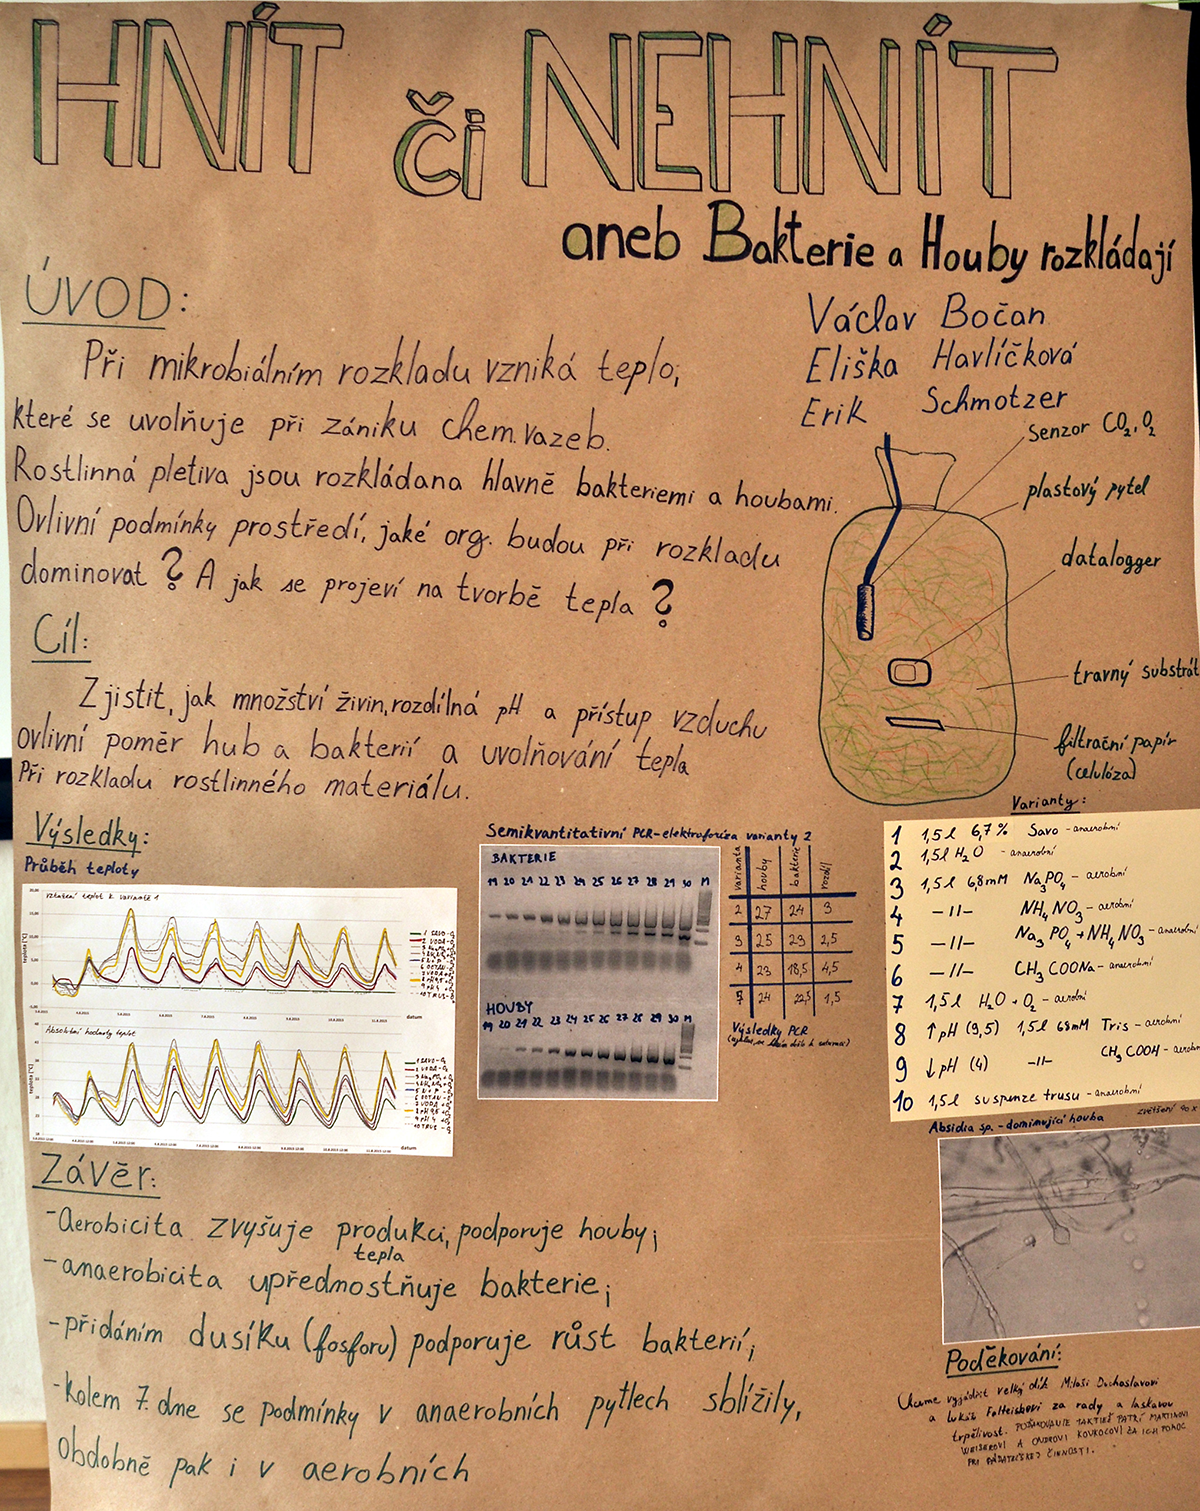 HNÍT či NEHNÍT
aneb Bakterie a Houby rozkládají
Václav Bočan
Eliška Havlíčková
Erik Schmotzer
ÚVOD:
Při mikrobiálním rozkladu vzniká teplo,
které se uvolňuje při zániku chem. vazeb.
Rostlinná pletiva jsou rozkládana hlavně bakteriemi a houbami.
Ovlivní podmínky prostředí, jaké org. budou při rozkladu
dominovat? A jak se projeví na tvorbě tepla?
senzor CO2, O2
plastový pytel
datalogger
travný substrát
filtrační papír
(celulóza)
Cíl:
Zjistit, jak množství živin, rozdílná pH a přístup vzduchu
ovlivní poměr hub a bakterií a uvolňování tepla
Při rozkladu rostlinného materiálu.
Výsledky:
Průběh teploty
Vztažení teplot k variantě 1
teplota [°C]
datum
Absolutní hodnoty teplot
teplota [°C]
datum
Semikvantitativní PCR-elektroforéza varianty 2
BAKTERIE
19 20 21 22 23 24 25 26 27 28 29 30 M
HOUBY
19 20 21 22 23 24 25 26 27 28 29 30 M
varianta houby bakterie rozdíl
2 27 24 3
3 25 23 2,5
4 23 18,5 4,5
5 24 22,5 1,5
Výsledky PCR
Varianty:
1 1,5 l 6,7 % Savo - anaerobní
2 1,5 l H2O - anaerobní
3 1,5 l 68mM Na3PO4 - aerobní
4 -11- NH4NO3 - aerobní
5 -11- Na3PO4 + NH4NO3 - anaerobní
6 -11- CH3COONa - anaerobní
7 1,5 l H2O + O2 - aerobní
8 ↑pH (9,5) 1,5 l 68mM Tris - aerobní
9 ↓pH (4) -11- CH3COOH - aerobní
10 1,5 l suspenze trusu - anaerobní
Absidia sp. - dominující houba zvětšení 40x
Závěr:
- Aerobicita zvyšuje produkci tepla, podporuje houby;
- anaerobicita upřednostňuje bakterie;
- přidáním dusíku (fosforu) podporuje růst bakterií;
- Kolem 7. dne se podmínky v anaerobních pytlech sblížily,
obdobně pak i v aerobních
Poděkování:
Chceme vyjádřit velký dík
a Lukáši za rady a laskavou
trpělivost. TAKTIEŽ PATRÍ MARTINOVI
A ZA ICH POMOC
PRI ČINNOSTI.